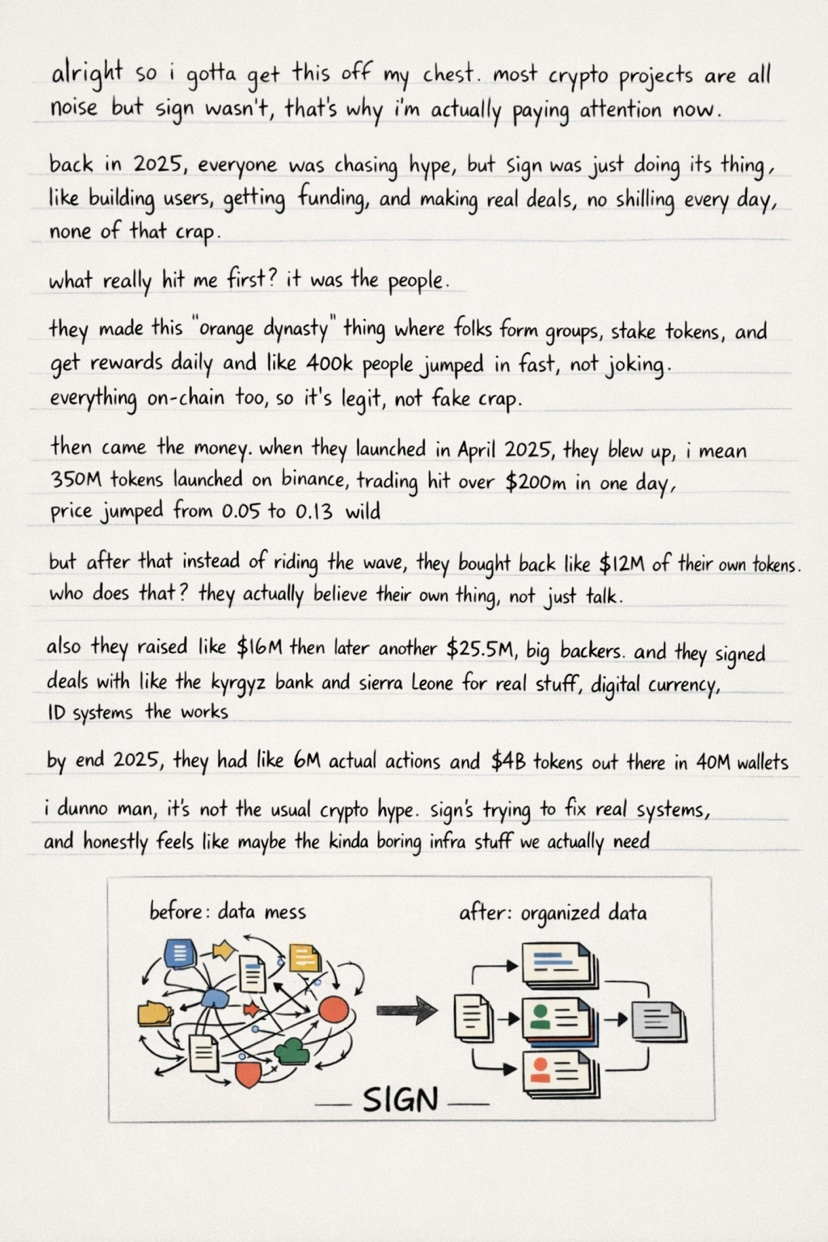 alright so i gotta get this off my chest. most crypto projects are all
noise but sign wasn't, that's why i'm actually paying attention now.
back in 2025, everyone was chasing hype, but Sign was just doing its thing,
like building users, getting funding, and making real deals, no shilling every day,
none of that crap.
what really hit me first? it was the people.
they made this "orange dynasty" thing where folks form groups, stake tokens, and
get rewards daily and like 400k people jumped in fast, not joking.
everything on-chain too, so it's legit, not fake crap.
then came the money. when they launched in April 2025, they blew up, i mean
350M tokens launched on binance, trading hit over $200m in one day,
price jumped from 0.05 to 0.13 wild
but after that instead of riding the wave, they bought back like $12M of their own tokens.
who does that? they actually believe their own thing, not just talk.
also they raised like $16M then later another $25.5M, big backers. and they signed
deals with like the kyrgyz bank and sierra Leone for real stuff, digital currency,
ID systems the works
by end 2025, they had like 6M actual actions and $4B tokens out there in 40M wallets
i dunno man, it's not the usual crypto hype. Sign's trying to fix real systems,
and honestly feels like maybe the kinda boring infra stuff we actually need
before: data mess
after: organized data
SIGN